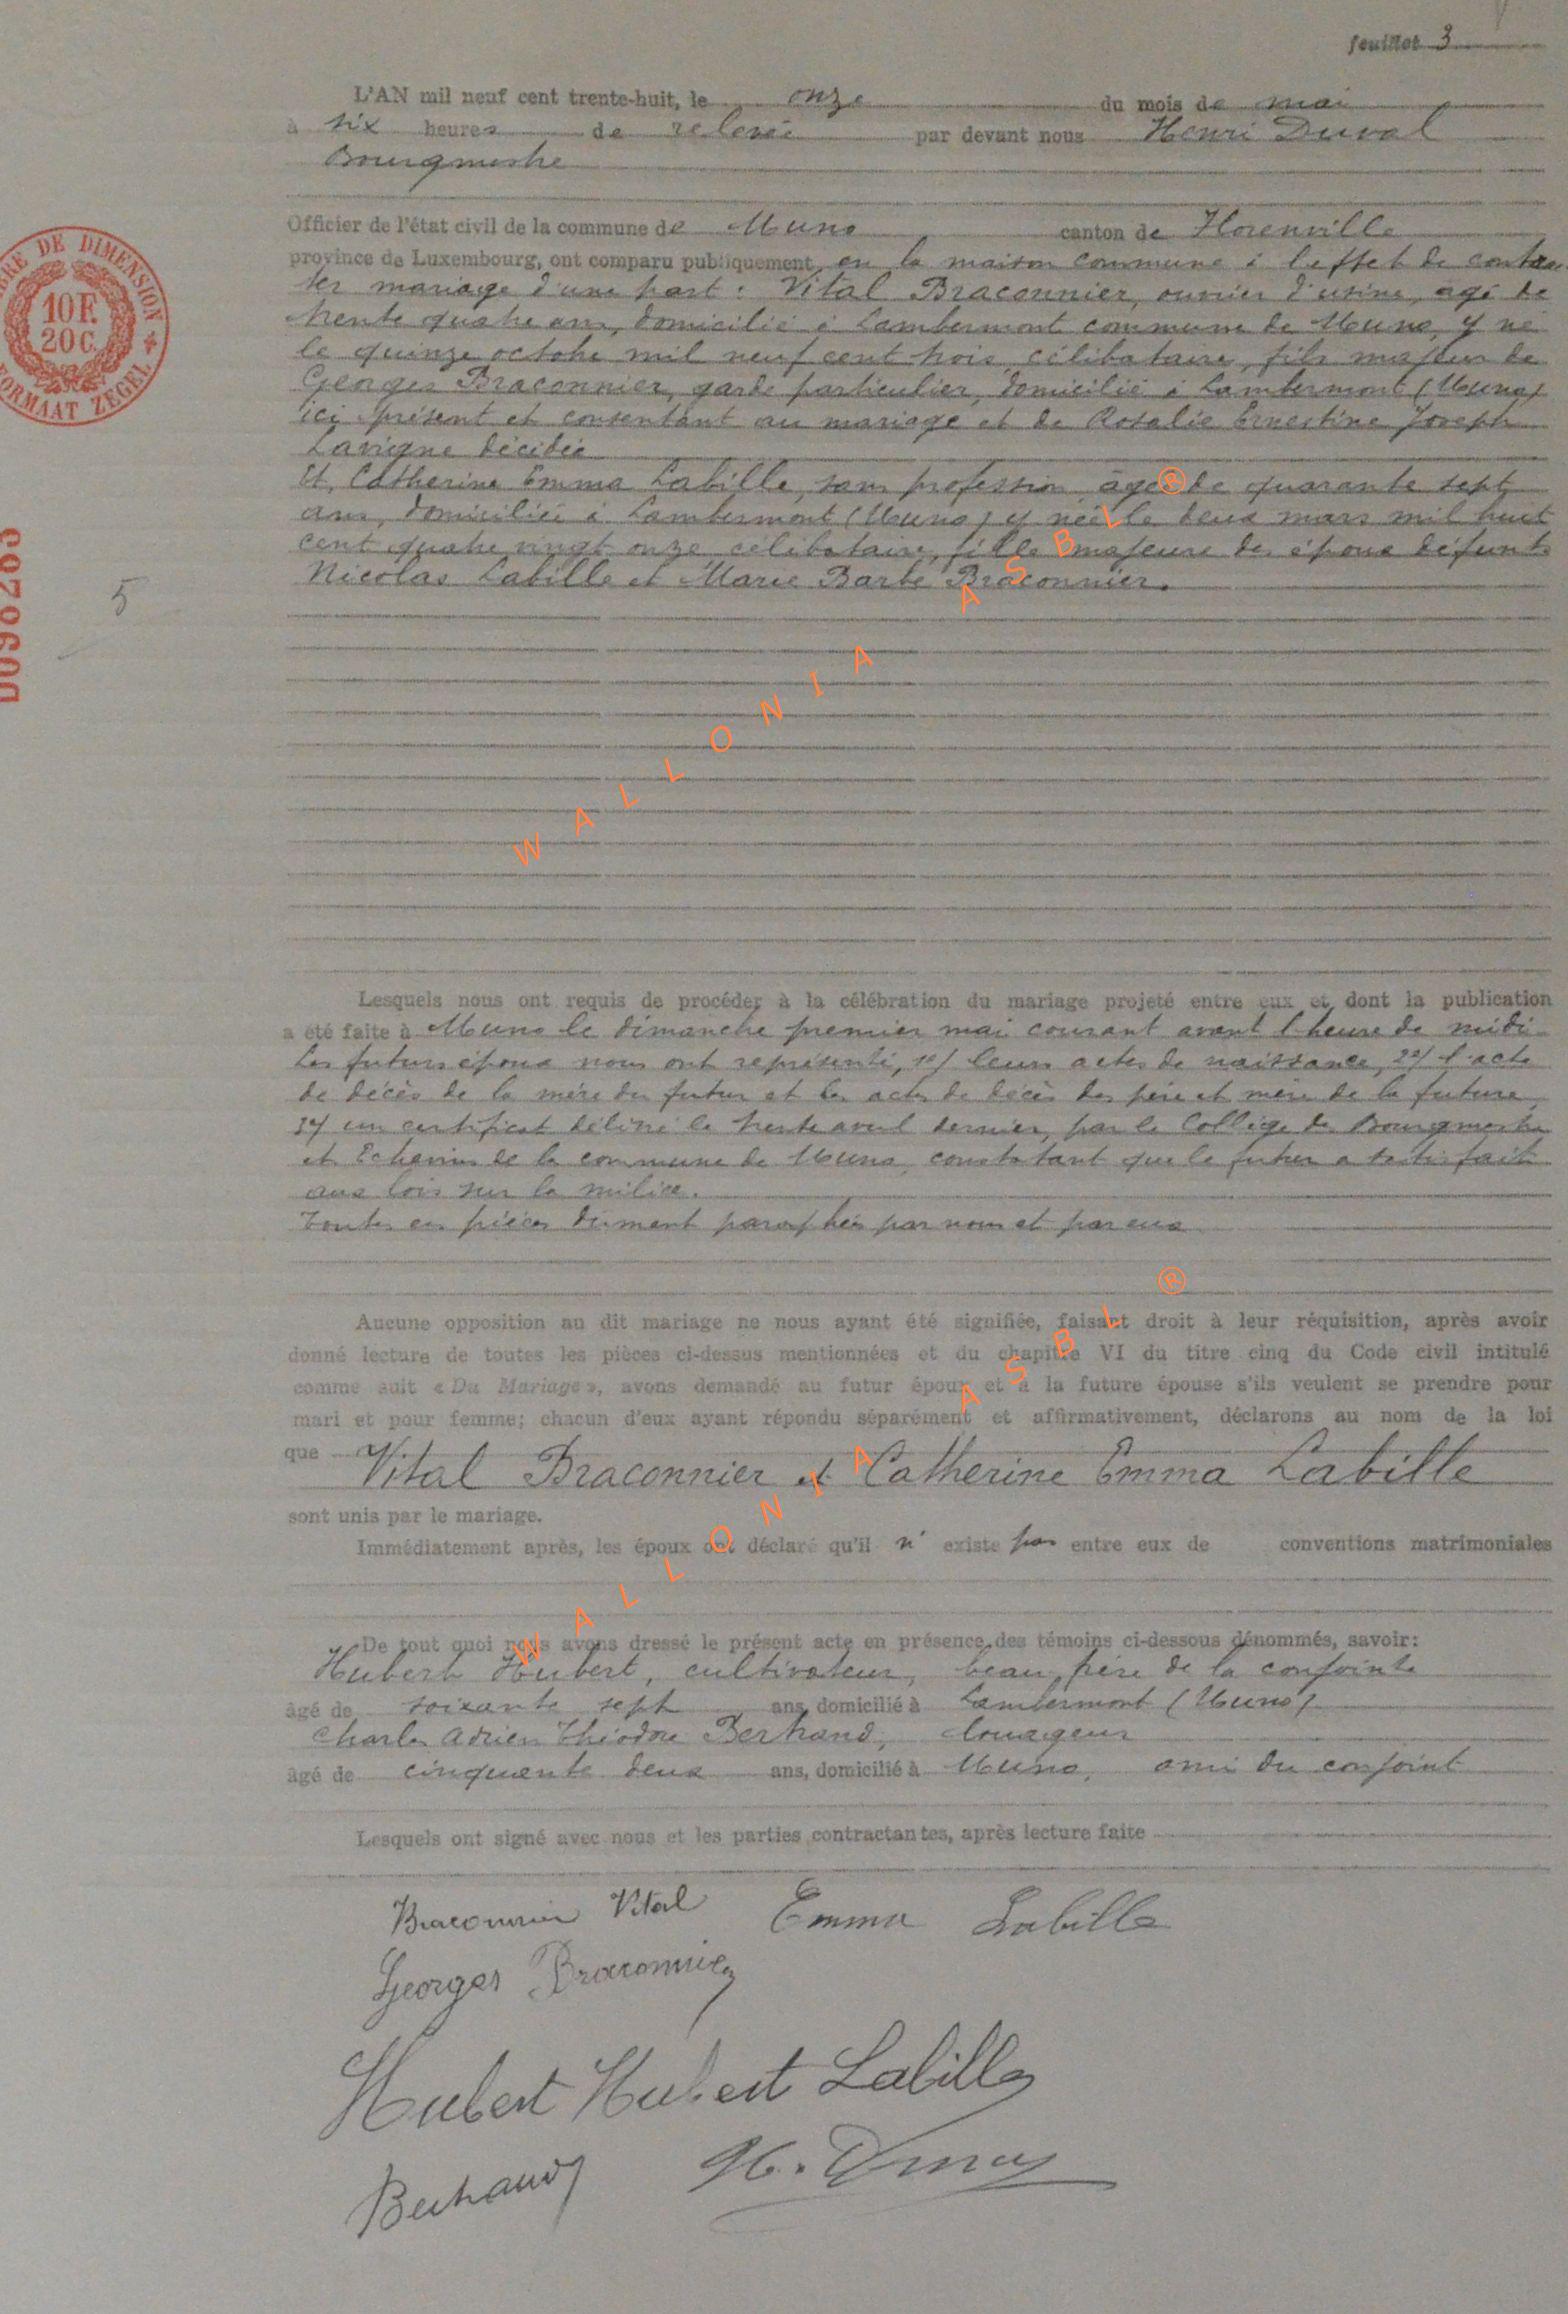 feuillet 3
L'AN mil neuf cent trente-huit, le onze du mois de mai
à six heures de relevée par devant nous Henri Duval
Bourgmestre
Officier de l'état civil de la commune de Muno canton de Florenville
province de Luxembourg, ont comparu publiquement en la maison commune à l'effet de contrac-
ter mariage d'une part : Vital Braconnier, ouvrier d'usine, âgé de
trente quatre ans, domicilié à Lambermont commune de Muno, y né
le quinze octobre mil neuf cent trois, célibataire, fils majeur de
Georges Braconnier, garde particulier, domicilié à Lambermont (Muno)
ici présent et consentant au mariage et de Rosalie Ernestine Joseph
Lavigne décédée
Et, Catherine Emma Labille, sans profession, âgée de quarante sept
ans, domiciliée à Lambermont (Muno) y née le deux mars mil huit
cent quatre vingt onze célibataire, fille majeure des époux défunts
Nicolas Labille et Marie Barbe Braconnier.
Lesquels nous ont requis de procéder à la célébration du mariage projeté entre eux et dont la publication
a été faite à Muno le dimanche premier mai courant avant l'heure de midi
Les futurs époux nous ont représenté, 1°/ leurs actes de naissance, 2°/ l'acte
de décès de la mère du futur et les actes de décès des père et mère de la future,
3°/ un certificat délivré le trente avril dernier, par le Collège des Bourgmestre
et Echevins de la commune de Muno, constatant que le futur a satisfait
aux lois sur la milice.
Toutes ces pièces dûment paraphées par nous et par eux
Aucune opposition au dit mariage ne nous ayant été signifiée, faisant droit à leur réquisition, après avoir
donné lecture de toutes les pièces ci-dessus mentionnées et du chapitre VI du titre cinq du Code civil intitulé
comme suit « Du Mariage », avons demandé au futur époux et à la future épouse s'ils veulent se prendre pour
mari et pour femme; chacun d'eux ayant répondu séparément et affirmativement, déclarons au nom de la loi
que Vital Braconnier et Catherine Emma Labille
sont unis par le mariage.
Immédiatement après, les époux ont déclaré qu'il n' existe pas entre eux de conventions matrimoniales
De tout quoi nous avons dressé le présent acte en présence des témoins ci-dessous dénommés, savoir:
Hubert Hubert, cultivateur, beau frère de la conjointe
âgé de soixante sept ans, domicilié à Lambermont (Muno)
Charles Adrien Théodore Bertrand,
âgé de cinquante deux ans, domicilié à Muno, ami du conjoint
Lesquels ont signé avec nous et les parties contractantes, après lecture faite
Braconnier Vital Emma Labille
Georges Braconnier
Hubert Hubert Labille
Bertrand H. Duval
TIMBRE DE DIMENSION
10 F.
20 C.
FORMAAT ZEGEL
D098283
5
WALLONIA ASBL ®
WALLONIA ASBL ®